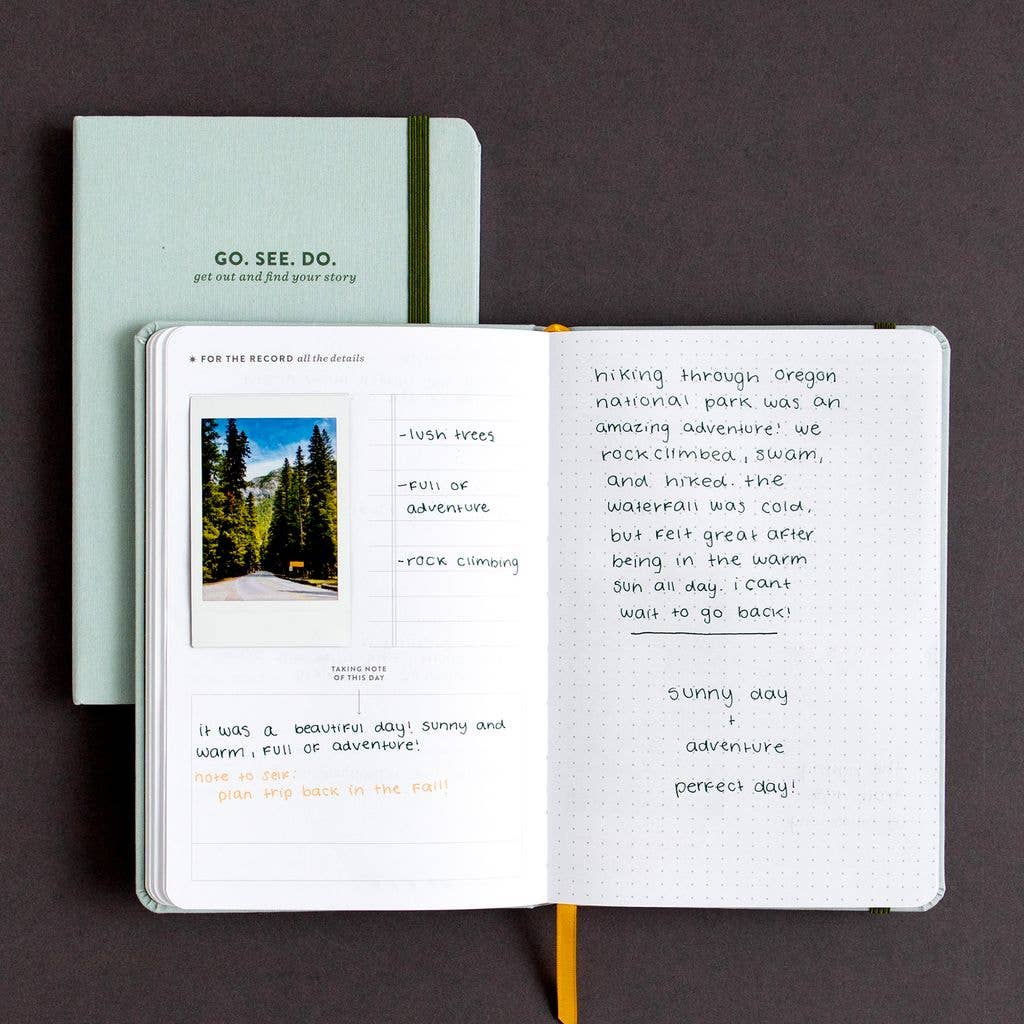 GO. SEE. DO.
get out and find your story
✷ FOR THE RECORD all the details
-lush trees
-full of
adventure
-rock climbing
TAKING NOTE
OF THIS DAY
it was a beautiful day! sunny and
warm, full of adventure!
note to self:
plan trip back in the fall!
hiking through oregon
national park was an
amazing adventure! we
rock climbed, swam,
and hiked. the
waterfall was cold,
but felt great after
being in the warm
sun all day. i cant
wait to go back!
sunny day
+
adventure
perfect day!